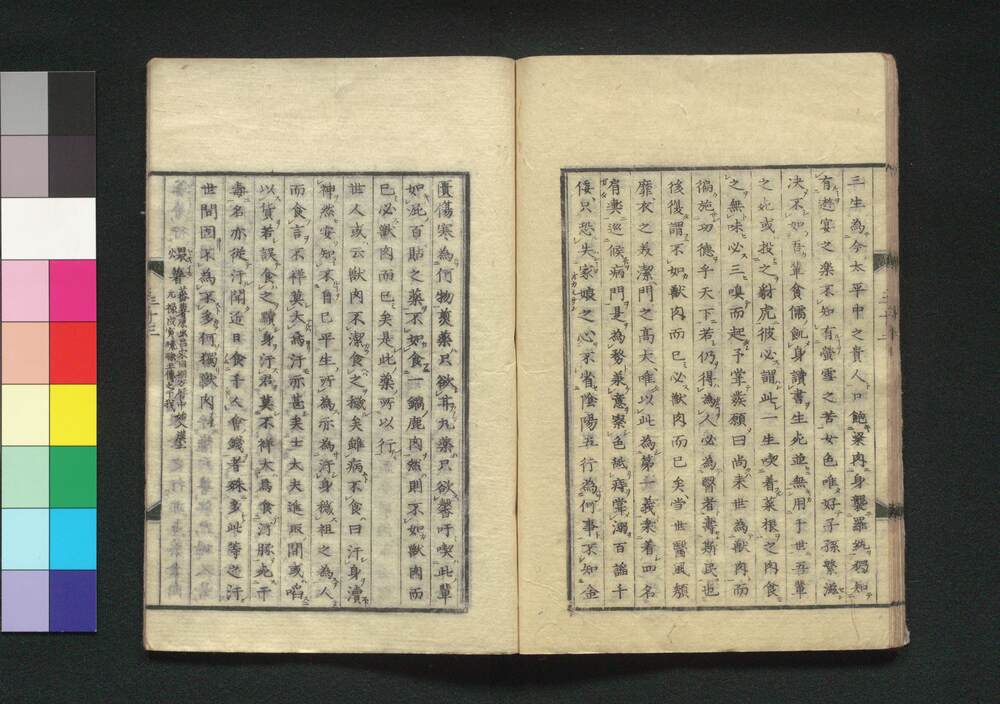 三生為今太平中之貴人口飽粱肉身襲羅紈獨知
有遊宴之樂不知有螢雪之苦女色唯好子孫繁滋
決不如吾輩貪儒飢身讀書生死並無用于世吾輩
之死或投之豺虎彼必謂此一生喫着菜根之肉食
之無味必三嗅而起予甞發願曰尚来世為獣肉而
徧施功德乎天下若仍得為人必為醫者壽斯民也
後復謂不如獸肉而已必獸肉而已矣當世醫風頽
靡衣之美潔門之高大唯以此為第一義来着四名
肩輿巡候病門是為務羨意察色舐痔甞溺百謟千
佞只恐失家娘之心不省陰陽五行為何事不知金
匱傷寒為何物煎藥只欲甘丸藥只欲馨吁喫此輩
如屁百貼之藥不如食一鍋鹿肉然則不如獸肉而
已必獸肉而已矣是此藥所以行
世人或云獣肉不潔食之穢矣雖病不食曰汙身瀆
神然安知不自已平生所為亦為汙身穢祖之為人
而食言不祥莫大為汙亦甚矣士大夫進取聞或啗
以貨若誤食之贖身汙君莫不祥大焉食酒豚
毒名亦從汙聞近日食千人會錢者殊多此等之汙
世間固不為不多何獨獸肉
煨薯